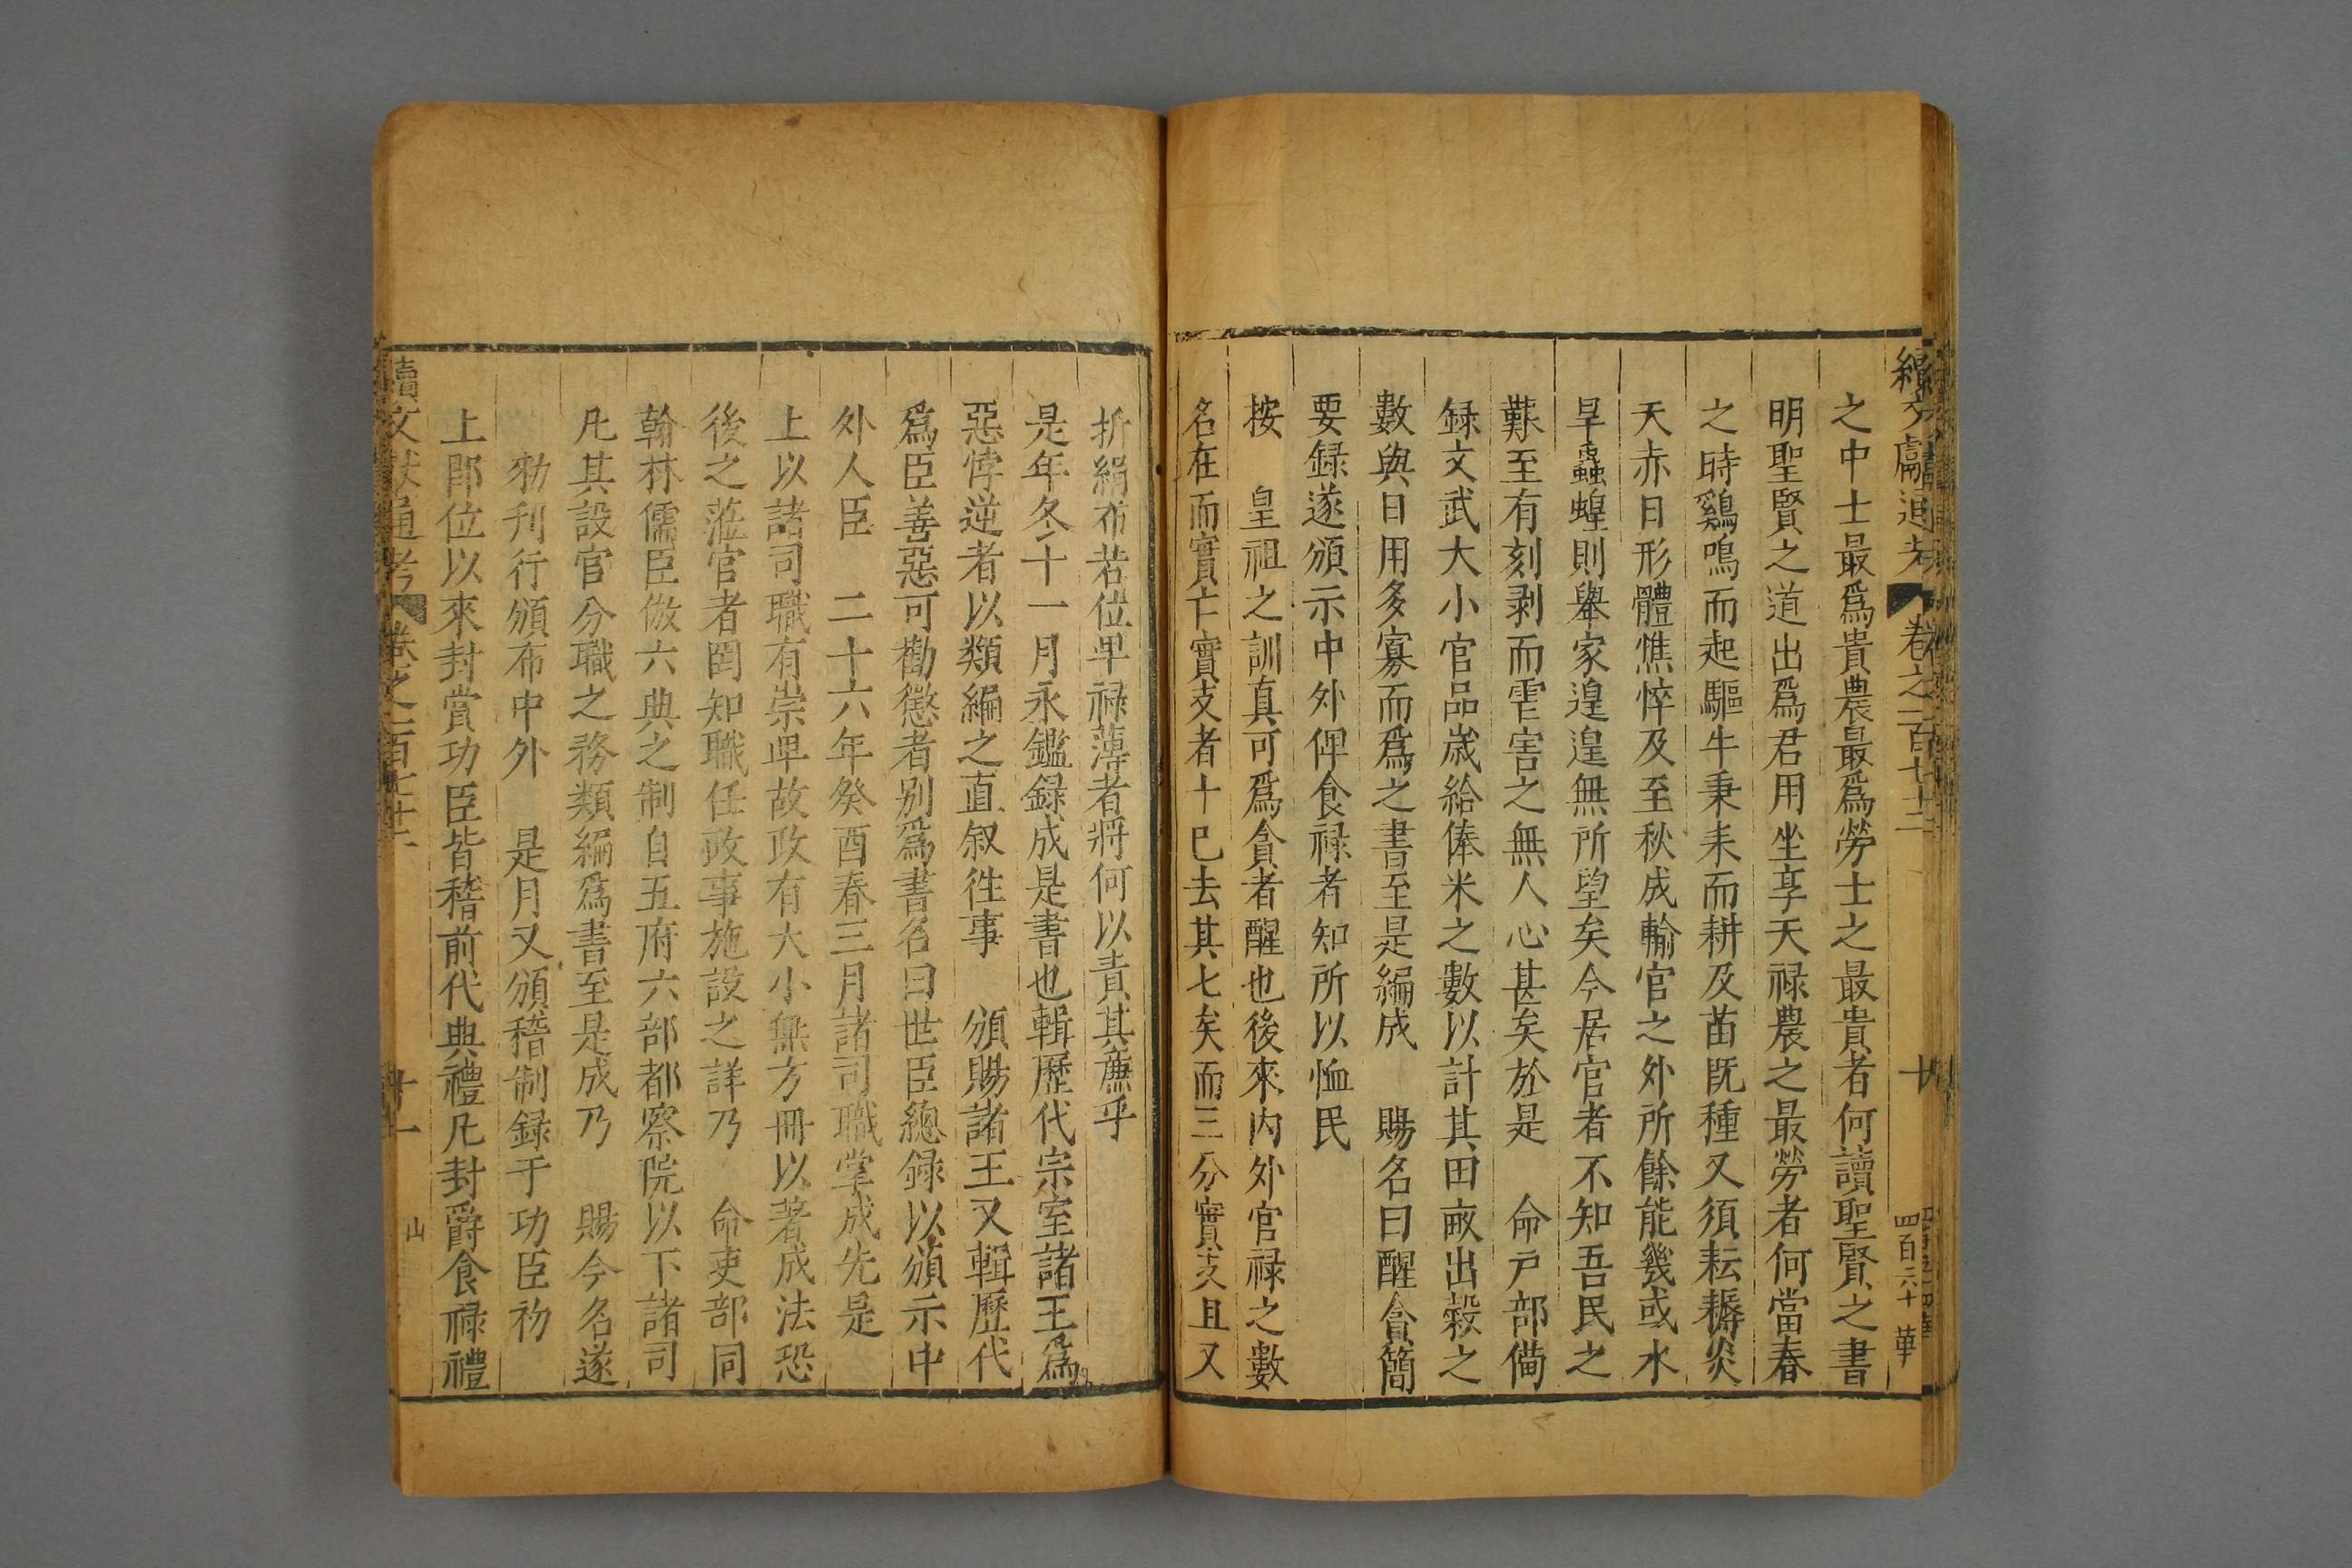 續文獻通考 卷之一百七十三 十 四百六十 華
之中士最爲貴農最爲勞士之最貴者何讀聖賢之書
明聖賢之道出爲君用坐享天祿農之最勞者何當春
之時鷄鳴而起驅牛秉耒而耕及苗旣種又須耘耨炎
天赤日形體憔悴及至秋成輸官之外所餘能幾或水
旱蟲蝗則舉家遑遑無所望矣今居官者不知吾民之
艱至有刻剥而虐害之無人心甚矣於是 命戸部備
録文武大小官品歲給俸米之數以計其田畝出穀之
數與日用多寡而爲之書至是編成 賜名曰醒貪簡
要録遂頒示中外俾食禄者知所以恤民
按 皇祖之訓真可爲貪者醒也後來内外官禄之數
名在而實亡實支者十已去其七矣而三分實支且又
折絹布若位卑禄薄者將何以責其廉乎
是年冬十一月永鑑録成是書也輯歷代宗室諸王爲
惡悖逆者以類編之直叙徃事 頒賜諸王又輯歷代
爲臣善惡可勸懲者别爲書名曰世臣總録以頒示中
外人臣 二十六年癸酉春三月諸司職掌成先是
上以諸司職有崇卑故政有大小無方冊以著成法恐
後之蒞官者罔知職任政事施設之詳乃 命吏部同
翰林儒臣倣六典之制自五府六部都察院以下諸司
凡其設官分職之務類編爲書至是成乃 賜今名遂
勑刋行頒布中外 是月又頒稽制録于功臣初
上即位以來封賞功臣皆稽前代典禮凡封爵食禄禮
續文獻通考 卷之一百七十三 十一 山